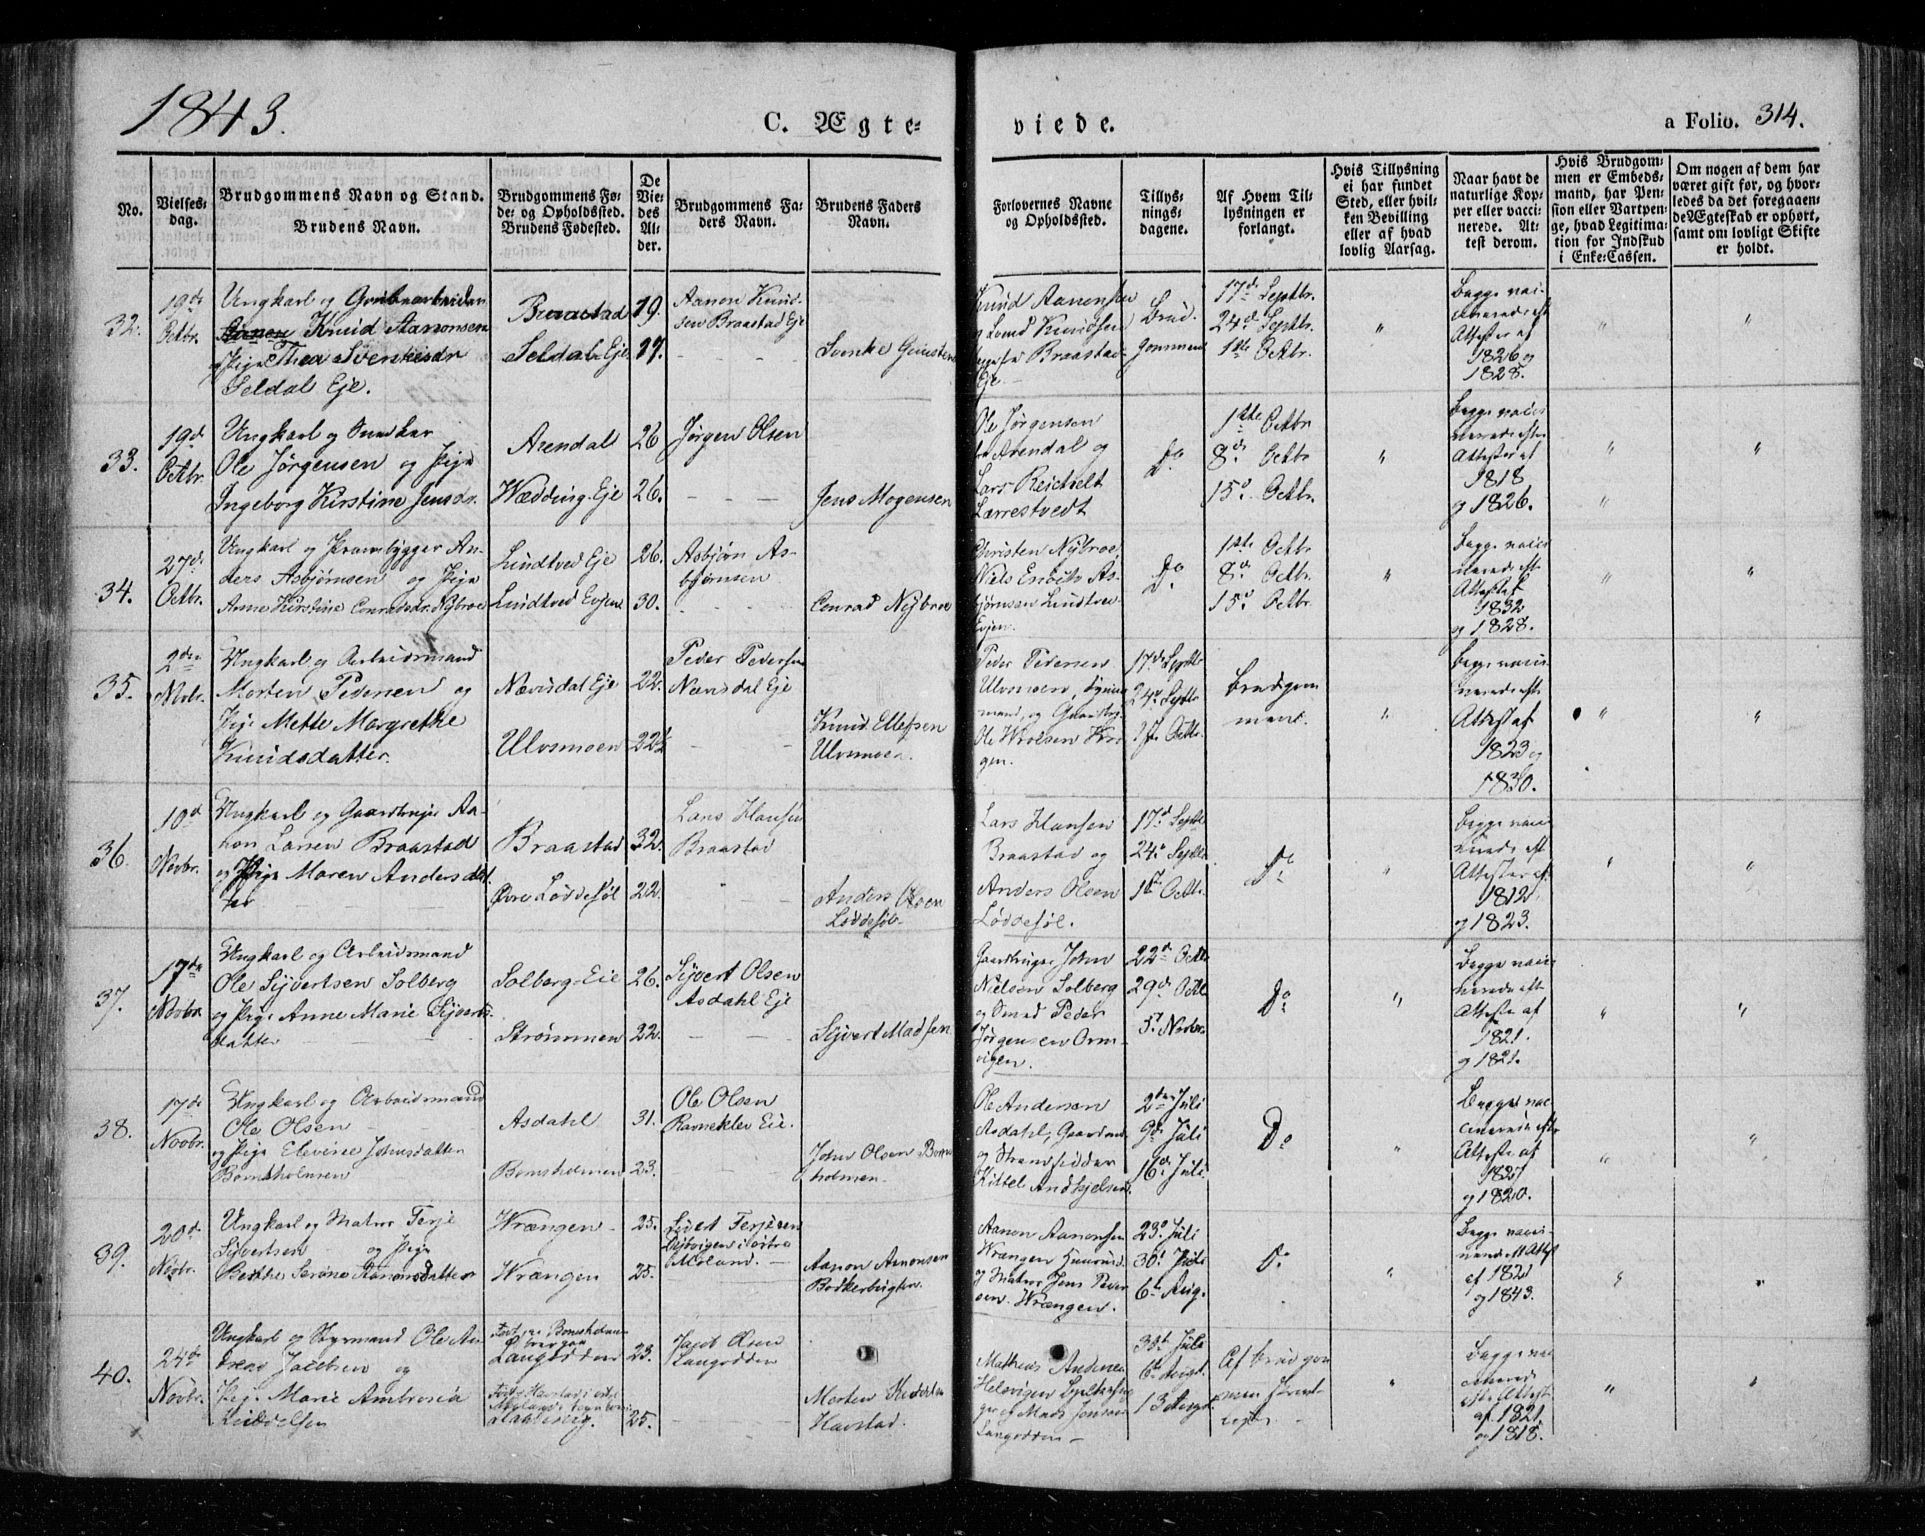 1843.
C. Ægte-
viede.
a Folio. 314.
No.
Vielses-
dag.
Brudgommens Navn og Stand.
Brudens Navn.
Brudgommens Fø-
de- og Opholdssted.
Brudens Fødested.
De
Vie-
des
Al-
der.
Brudgommens Fa-
ders Navn.
Brudens Faders
Navn.
Forlovernes Navne
og Opholdssted.
Tillys-
nings-
dagene.
Af Hvem Til-
lysningen er
forlangt.
Hvis Tillysning
ei har fundet
Sted, eller hvil-
ken Bevilling
eller af hvad
lovlig Aarsag.
Naar havt de
naturlige Kop-
per eller vacci-
nerede. At-
test derom.
Hvis Brudgom-
men er Embeds-
mand, har Pen-
sion eller Vartpen-
ge, hvad Legitima-
tion for Indskud
i Enke-Cassen.
Om nogen af dem har
været gift før, og hvor-
ledes da det foregaaen-
de Ægteskab er ophørt,
samt om lovligt Skifte
er holdt.
32.
19de
Octbr.
Ungkarl og Grubearbeider
Knud Aanonsen
Pige Thea
Seldal Eje.
Braastad
Seldal Eje
19.
Aanon Knud-
sen Braastad Eje
Knud Aanonsen
og Svend Knudsen
Braastad-
Eje
Brud-
gommen
17de Septbr.
24de Septbr.
1ste Octbr.
Begge vaci-
nerede eft
Attester af
1826 og
1828.
33.
19de
Octbr.
Ungkarl og Snedker
Ole Jørgensen og Pige
Ingeborg Kirstine Jensdr.
Arendal
Wædding-Eje
26
26.
Jørgen Olsen
Jens Mogensen
Ole Jørgensen
Arendal og
Lars Reichelt
Lærrestvedt
Do
1ste Octbr
8de Octbr
15de Octbr.
Begge vacci-
nerede efter
Attester af
1818
og 1826.
34.
27de
Octbr.
Ungkarl og Prambygger An-
ders Asbjørnsen og Pige
Anne Kirstine Conradsdr. Nybroe
Lundtved Eje
Lundtved Evjen
26.
30.
Asbjørn As-
bjørnsen
Conrad Nybroe
Christen Nybroe,
Niels As-
bjørnsen Lundtved-
Evjen.
Do
1ste Octbr
8de Octbr.
15de Octbr.
Begge vacci-
nerede eft
Attest af
1832
og 1828.
35.
2den
Novbr.
Ungkarl og Arbeidsmand
Morten Pedersen og
Pige Mette Margrethe
Knudsdatter.
Nævisdal Eje
Ulvsmoen
22.
22½
Peder Pedersen
Nævisdal Eje
Knud Ellefsen
Ulvsmoen.
Peder Pedersen
Ulvsmoen,
mand, og
Ole
17de Septbr
24de Septbr
1ste Octbr.
Brudgom
men.
Begge vacci-
nerede efter
Attest af
1823 og
1830.
36.
10de
Novbr.
Ungkarl og Gaardbruger Aa-
non Larsen Braastad
og Pige Maren Andersdat-
ter
Braastad
Øvre Løddesøl
32.
22.
Lars Hansen
Braastad
Anders Olsen
Løddesøl.
Lars Hansen
Braastad og
Anders Olsen
Løddesøl.
17de Septbr
24de Septbr
1ste Octbr.
Do
Begge vacci-
nerede eft
Attester af
1812
og 1823.
37.
17de
Novbr.
Ungkarl og Arbeidsmand
Ole Sijvertsen Solberg
og Pige Anne Marie Sijverts-
datter
Solberg-Eie
Strømmen
26.
22.
Sijvert Olsen
Asdahl Eje
Sijvert Madsen
Gaardbruger John
Nielsen Solberg
og Smed Peder
Jørgensen Orm-
vigen.
22de Octbr
29de Octbr
5te Novbr.
Do
Begge vacci-
nerede eft
Attester af
1821.
og 1821.
38.
17de
Novbr.
Ungkarl og Arbeidsmand
Ole Olsen
og Pige Elevine Johnsdatter
Bomsholmen
Asdahl
Bomsholmen
31.
23.
Ole Olsen
Ravneklev Eie.
John Olsen Boms-
holmen.
Ole Andersen
Asdahl, Gaardm
og Strandsidder
Kittel
2den Juli
9de Juli
16de Juli
Do
Begge vac-
cinerede efter
Attester af
1827
og 1820.
39.
20de
Novbr.
Ungkarl og Matros Terje
Sijvertsen og Pige
Berthe Serine Aanonsdatter
Wrængen
Wrængen
25.
25.
Sivert Terjesen
i østre
Moland.
Aanon Aanonsen
Bødkerbugten.
Aanon Aanonsen
Wrængen
og Matros Jens Peder-
sen Wrængen.
23de Juli
30de Juli
6te Aug.
Do
Begge vacci-
nerede Attest
af 1821
og 1843.
40.
24de
Novbr.
Ungkarl og Styrmand Ole An-
dreas Jacobsen og
Pige Marie Ambrosia
Langodden
23.
25.
Jacob Olsen
Langodden
Morten
Havstad.
Mathias Andersen
Helevigen
Langodden
30te Julii
6te Augst.
13 Augst.
Af Brudgom-
men
Begge vac-
cinerede
efter Attest
af 1821
og 1818.